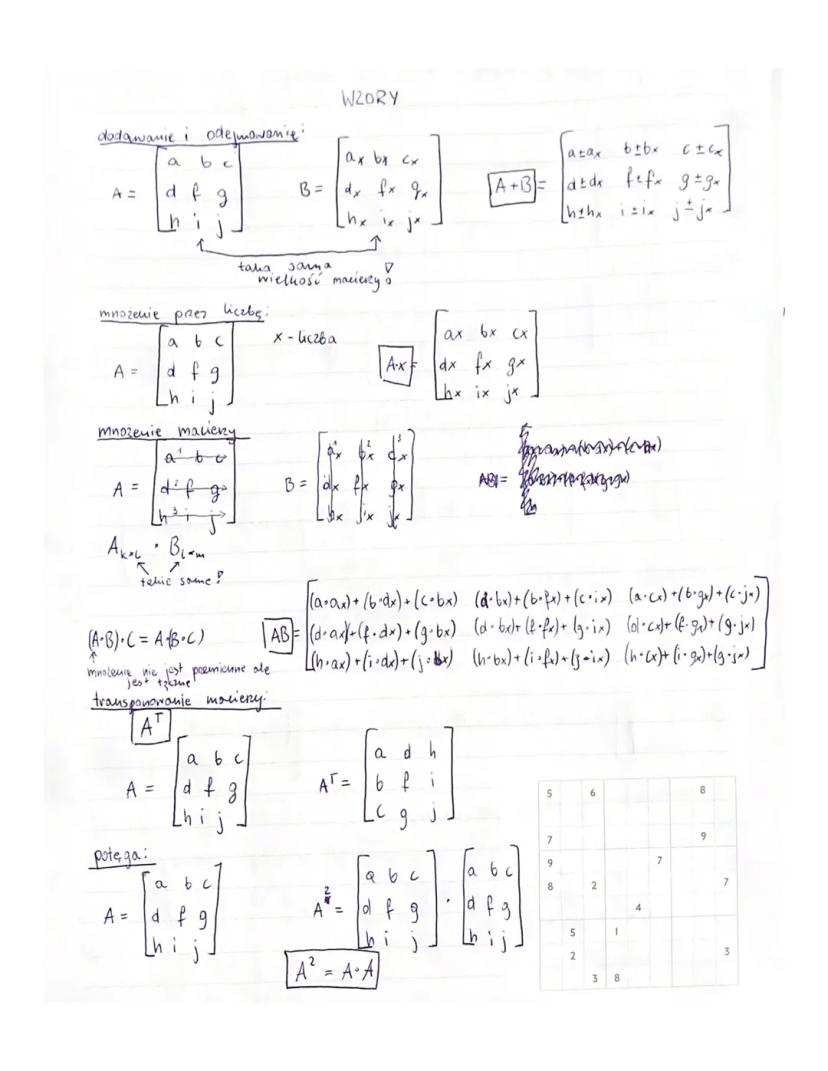 WZORY
dodawanie i odejmowanie:
A = [a b c
d f g
h i j]
B = [ax bx cx
dx fx gx
hx ix jx]
A+B = [a±ax b±bx c±cx
d±dx f±fx g±gx
h±hx i±ix j±jx]
taka sama
wielkość macierzy!
mnożenie przez liczbę:
A = [a b c
d f g
h i j]
x - liczba
A·x = [ax bx cx
dx fx gx
hx ix jx]
mnożenie macierzy
A = [a¹ b c
d² f g
h³ i j]
B = [ax¹ bx² cx³
dx fx gx
hx ix jx]
AB =
A k×l · B l×m
takie same!
(A·B)·C = A·(B·C)
mnożenie nie jest przemienne ale
jest łączne
AB = [(a·ax)+(b·dx)+(c·bx) (a·bx)+(b·fx)+(c·ix) (a·cx)+(b·gx)+(c·jx)
(d·ax)+(f·dx)+(g·bx) (d·bx)+(f·fx)+(g·ix) (d·cx)+(f·gx)+(g·jx)
(h·ax)+(i·dx)+(j·bx) (h·bx)+(i·fx)+(j·ix) (h·cx)+(i·gx)+(g·jx)]
transponowanie macierzy:
Aᵀ
A = [a b c
d f g
h i j]
Aᵀ = [a d h
b f i
c g j]
potęga:
A = [a b c
d f g
h i j]
A² = [a b c
d f g
h i j] · [a b c
d f g
h i j]
A² = A·A
5 6 8
7 9
9 7
8 2 7
4
5 1
2 3
3 8